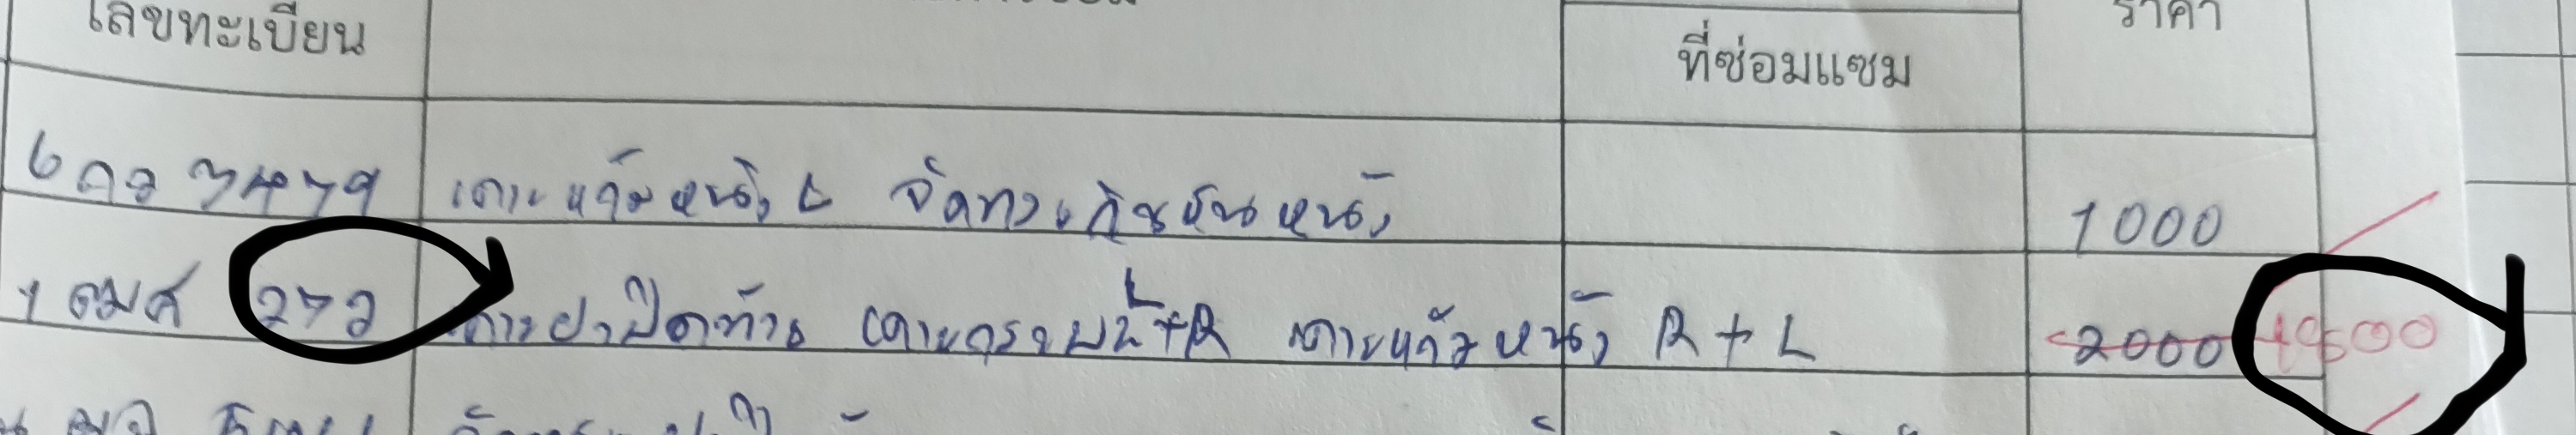 เลขทะเบียน ราคา
ที่ซ่อมแซม
6 กว 7479 เคาะแก้มหน้า L จัดทรงกันชนหน้า 1000
1 ฒศ 272 เคาะฝาปิดท้าย เคาะกระบะ L+R เคาะแก้มหน้า R + L 2000 1500